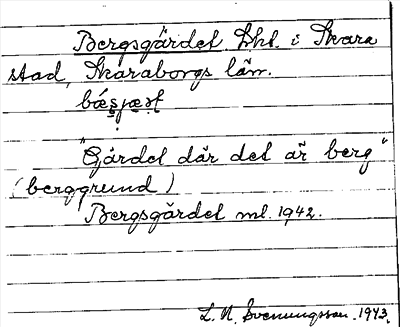 Bergsgärdet. Lht. i Skara
stad, Skaraborgs län.
"Gärdet där det är berg"
(berggrund)
Bergsgärdet ml. 1942.
L. N. Svenungsson. 1943.